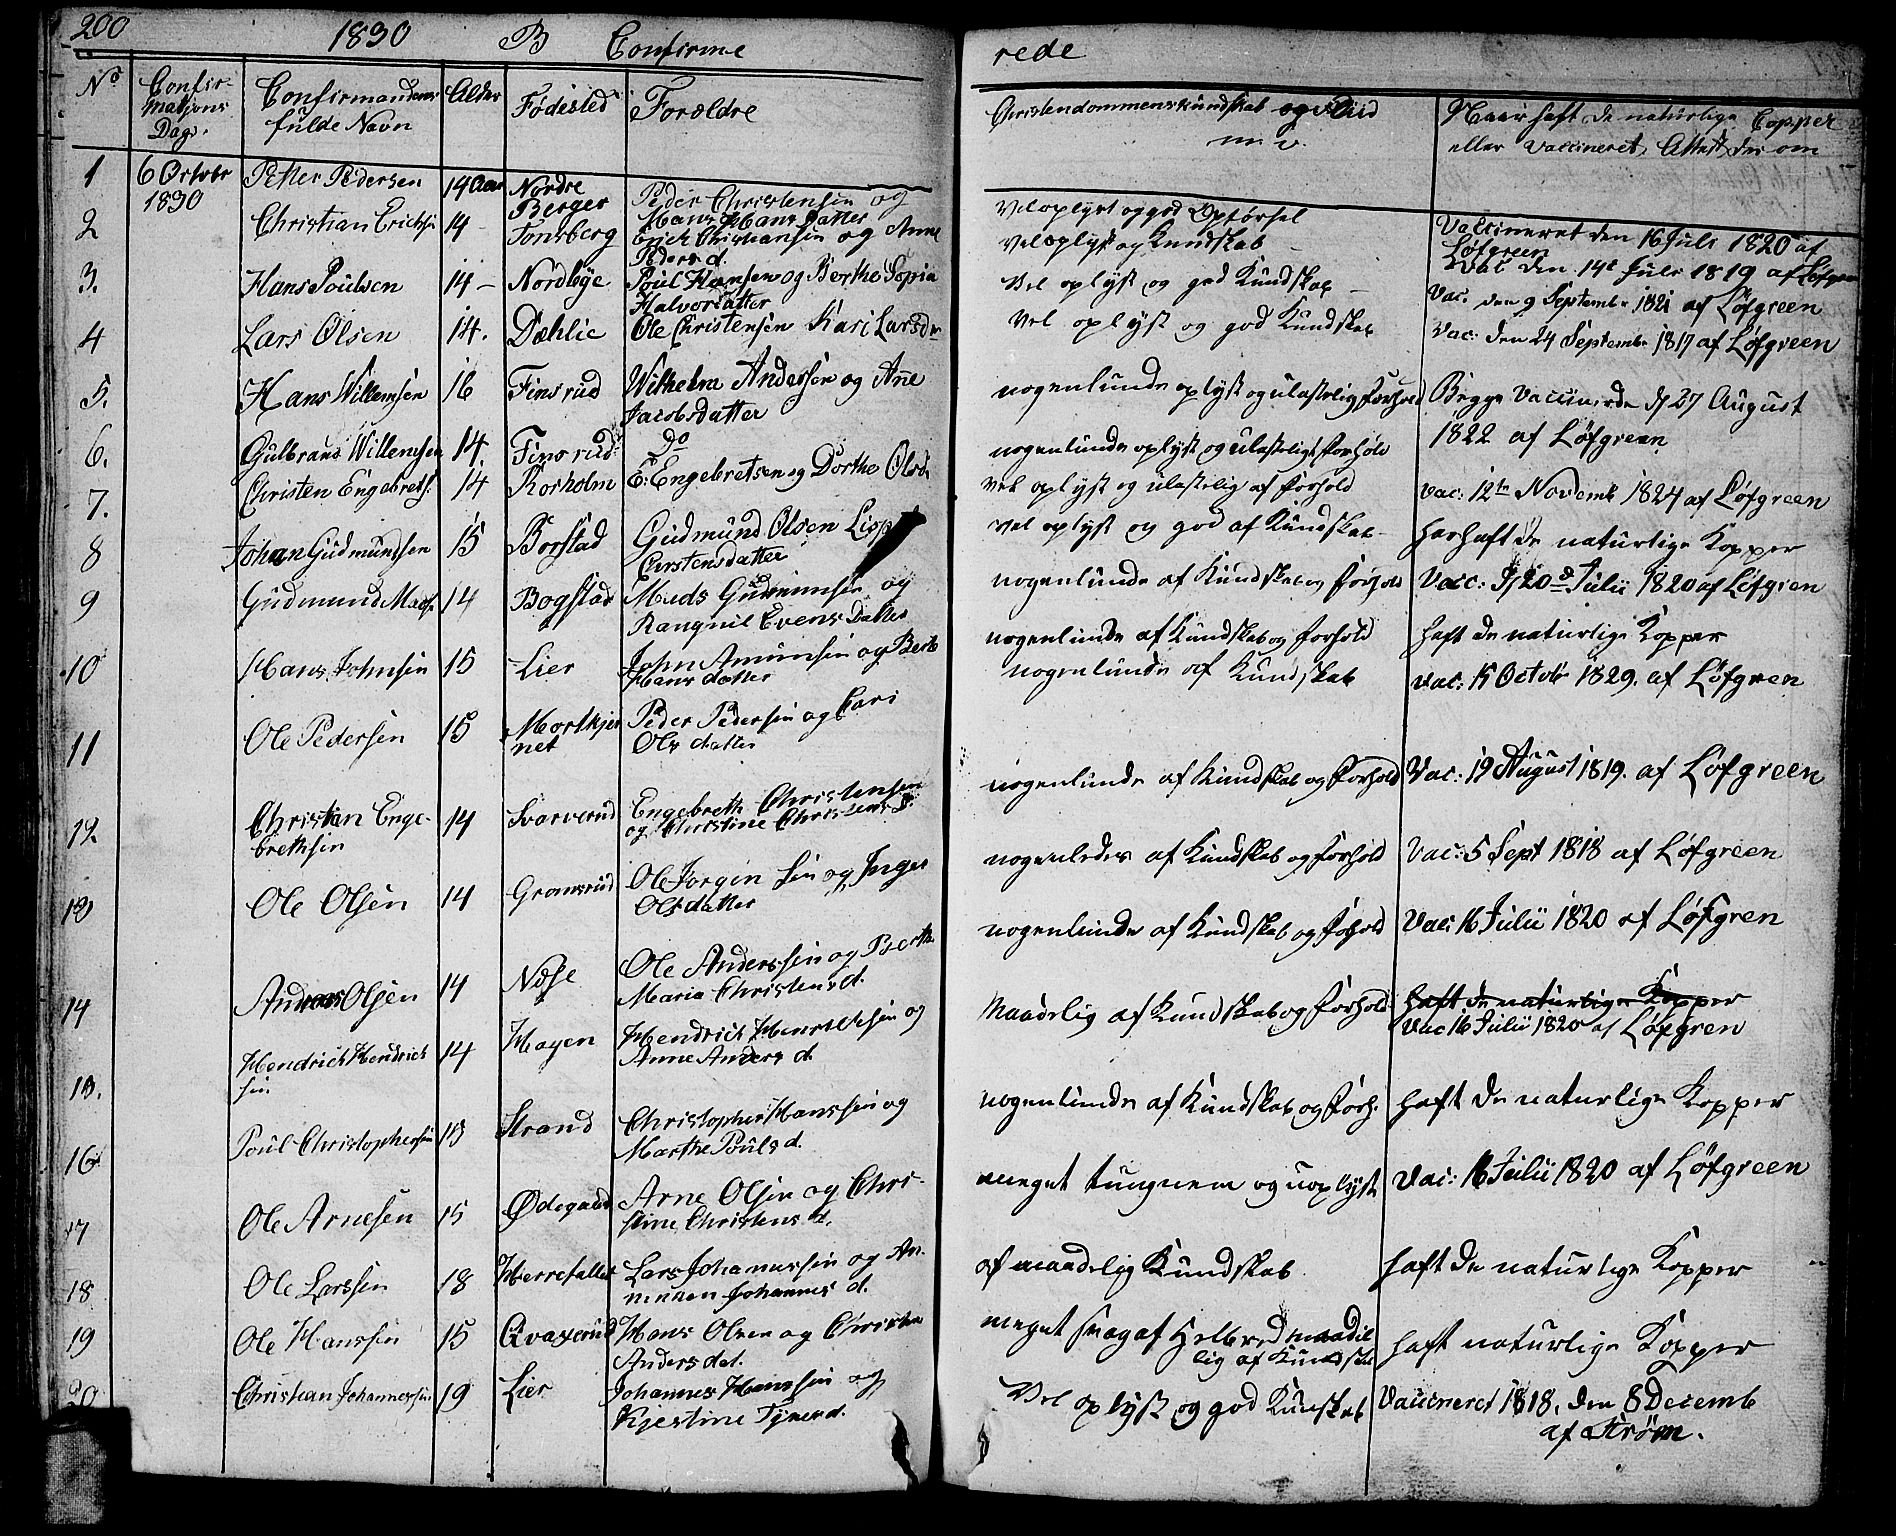 200
1830 B Confirme rede
No Confirmationsdag. Confirmandens fulde Navn Alder Fødested Forældre Christendommenskundskab og Flid m. v. Naar haft de naturlige Copper eller vaccineret, Attest der om
1 6 Octobr 1830 Petter Pedersen 14 Aar Nordre Berger Peder Christensen og Hans Datter Vel oplyst og god Opførsel Vaccineret den 16 Juli 1820 af Løfgreen
2 Christian Erichsen 14 Tonsberg Erich Christiansen og Anne Peders d. Vel oplyst og Kundskab Vac den 14t Juli 1819 af Løfgreen
3. Hans Poulsen 14 Nordbye Poul Hansen og Berthe Sopia Halvorsdatter Vel oplyst og god Kundskab Vac. den 9 Septembr 1821 af Løfgreen
4 Lars Olsen 14. Dæhlie Ole Christensen Kari Larsd Vel oplyst og god Kundskab Vac: den 24 Septembr 1817 af Løfgreen
5. Hans Willemsen 16 Finsrud Wilhelm Andersen og Ane Jacobsdatter nogenlunde oplyst og ulastelig Forhold Begge Vaccinerede d 27 August
6. Gulbrand Willemsen 14. Finsrud Do nogenlunde oplyst og ulasteligt Forhold 1822 af Løfgreen
7. Christen Engebrets. 14 Korholm E: Engebretsen og Dorthe Olsd. vel oplyst og ulastelig af forhold vac: 12te Novemb 1824 af Løfgreen
8 Johan Gudmundsen 15 Borstad Gudmund Olsen Chrstensdatter vel oplyst og god af Kundskab har haft de naturlige Kopper
9 Gudmund Mads 14 Bogstad Mads Gudmunsen og Rangnil Evens Datter nogenlunde af Kundskab og forhold Vacc: d 20 Julii 1820 af Løfgren
10 Hans Johnsen 15 Lier John Amunsen og Berte Hans datter nogenlunde af Kundskab og forhold haft de naturlige Kopper
nogenlunde af Kundskab vac: 15 Octobr 1829. af Løfgren
11 Ole Pedersen 15 Mortkjernet Peder Pedersen og Kari Ols datter nogenlunde af Kundskab og Forhold Vac: 19 August 1819. af Løfgreen
12 Christian Engebrethsen 14 Svarverud Engebreth Christensen og Christine Christens D. nogenledes af Kundskab og forhold Vac: 5 Sept 1818 af Løfgreen
13 Ole Olsen 14 Gronsrud Ole Jorgensen og Inger Olsdatter nogenlunde af Kundskab og forhold Vac: 16 Julii 1820 af Løfgren
14 Andreas Olsen 14 Næse Ole Anderssen og Berthe Maria Christens d. Maadelig af Kundskab og forhold haft de naturlige Kopper
Vac 16 Julii 1820 af Løfgren
15. Hendrich Hendrichsen 14 Hagen Hendrich Hendrichsen og Anne Anders d. nogenlunde af Kundskab og Forh. haft de naturlige Kopper
16 Poul Christophersen Strand Christopher Hanssen og Marthe Pouls d. meget tungnem og uoplyst Vac: 16 Julii 1820 af Løfgreen
17 Ole Arnesen 15 Ødegaard Arne Olsen og Christine Christens d. af maadelig Kundskab haft de naturlige Kopper
18 Ole Larssen 18 Herrefallet Lars Johannessen og Anniken Johannes d. meget svag af Helbred maadelig af Kundskab haft naturlige Kopper
19 Ole Hanssen 15 Qvaxerud Hans Olsen og Christine Anders dat. Vel oplyst og god Kundskab Vaccineret 1818, den 8 Decemb af Strøm.
20 Christian Johannessen 19 Lier Johannes Hanssen og Kjestine d.